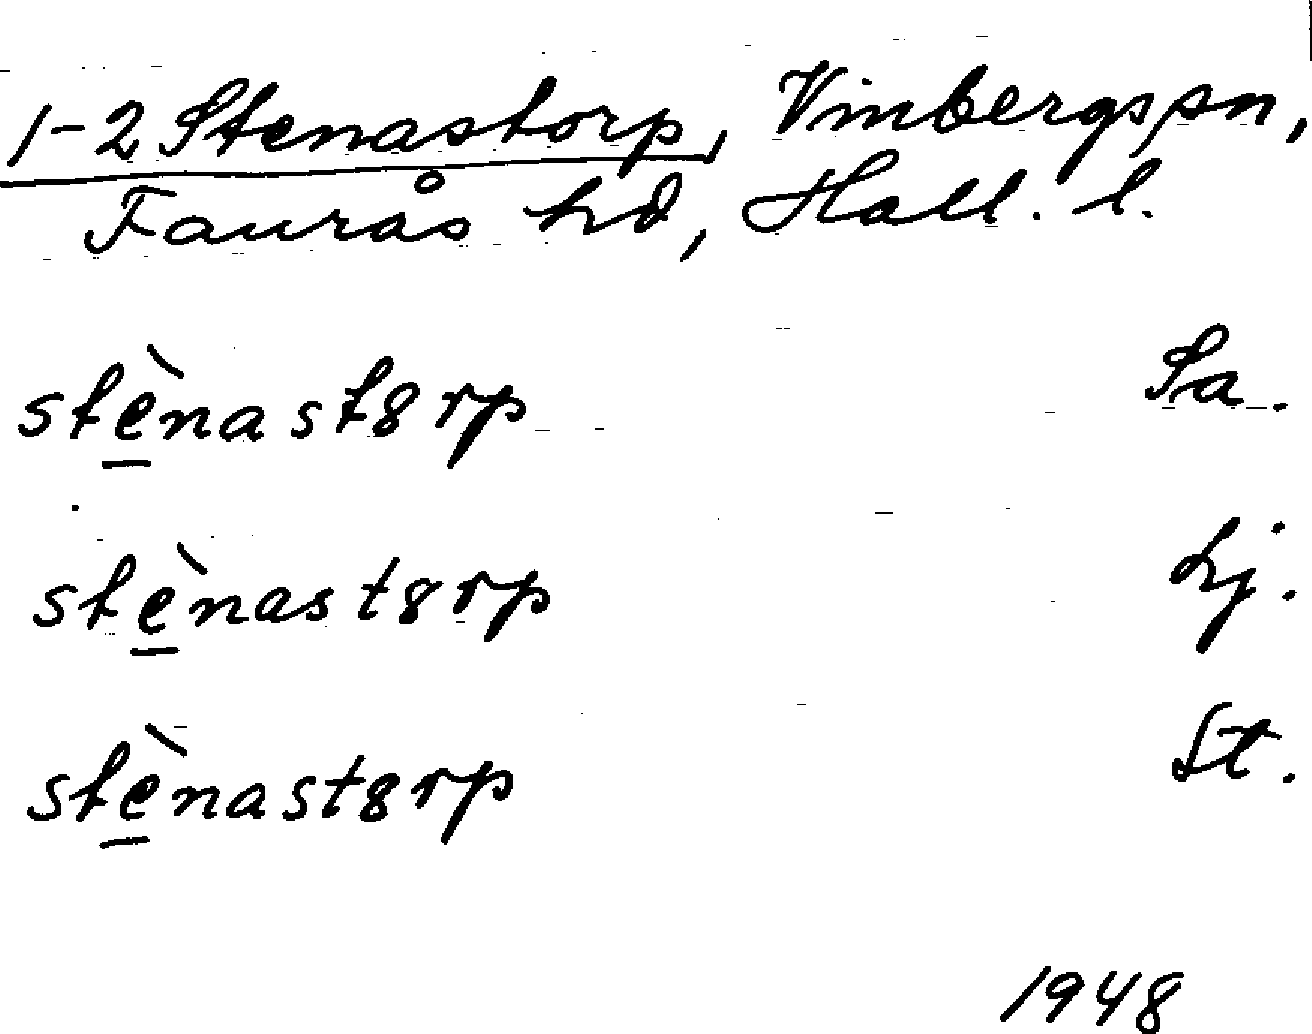 1-2 Stenastorp, Vinbergs sn,
Faurås hd, Hall. l.
stènast8rp Sa.
stènast8rp Lj.
stènast8rp St.
1948